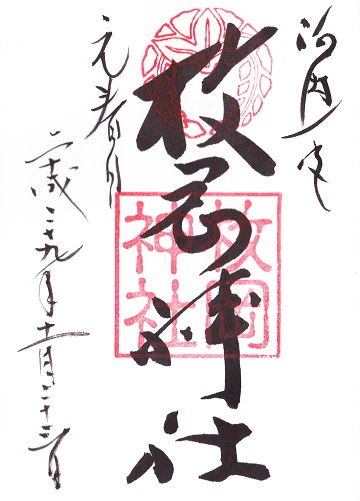 河内一宮
枚岡神社
枚岡
神社
元春日
平成二十九年十一月二十三日